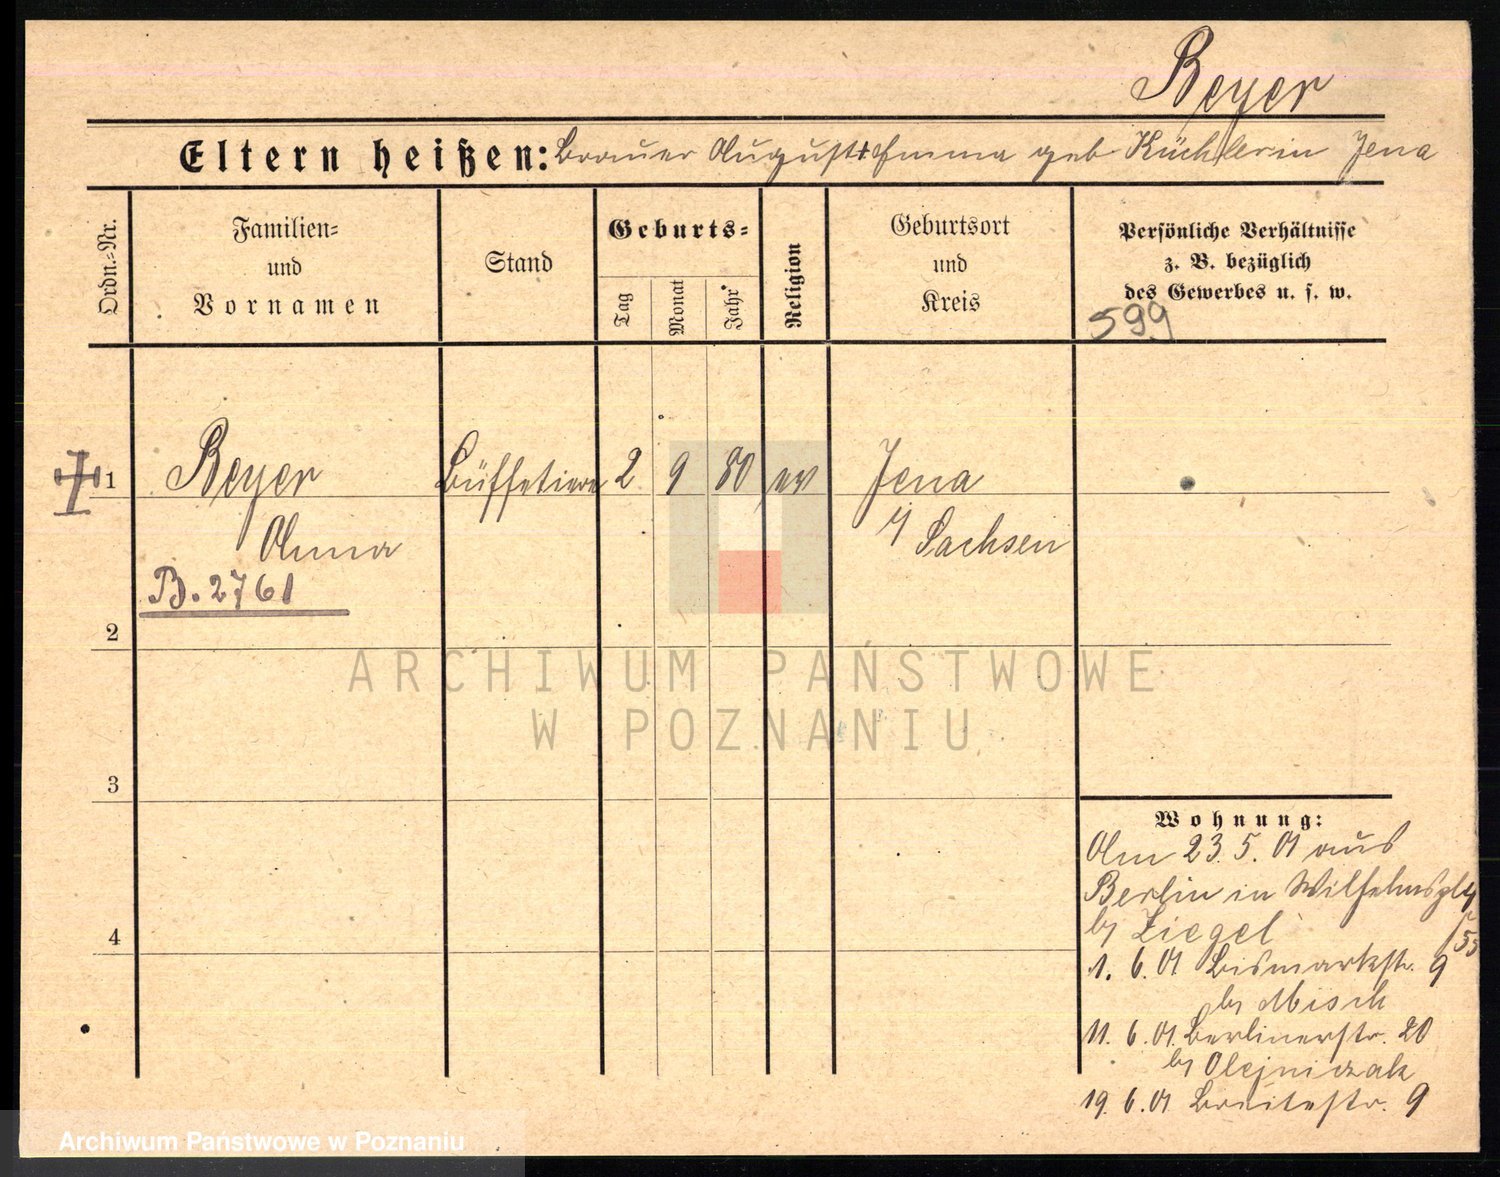 Beyer
Eltern heißen: Brauer August + Emma geb Küchler in Jena
Ordn.-Nr.
Familien-
und
Vornamen
Stand
Geburts-
Tag
Monat
Jahr
Religion
Geburtsort
und
Kreis
Persönliche Verhältnisse
z. B. bezüglich
des Gewerbes u. s. w.
599
1 Beyer Büffetiere 2 9 80 ev Jena
Anna i/ Sachsen
B. 2761
2
ARCHIWUM PAŃSTWOWE
W POZNANIU
3
Wohnung:
Am 23. 5. 01 aus
Berlin in Wilhelmspl 4
by Ziegel
1. 6. 01 Bismarkstr. 9
by Misch
11. 6. 01. Berlinerstr. 20
by Olejniczak
19. 6. 01 Breitestr. 9
4
Archiwum Państwowe w Poznaniu